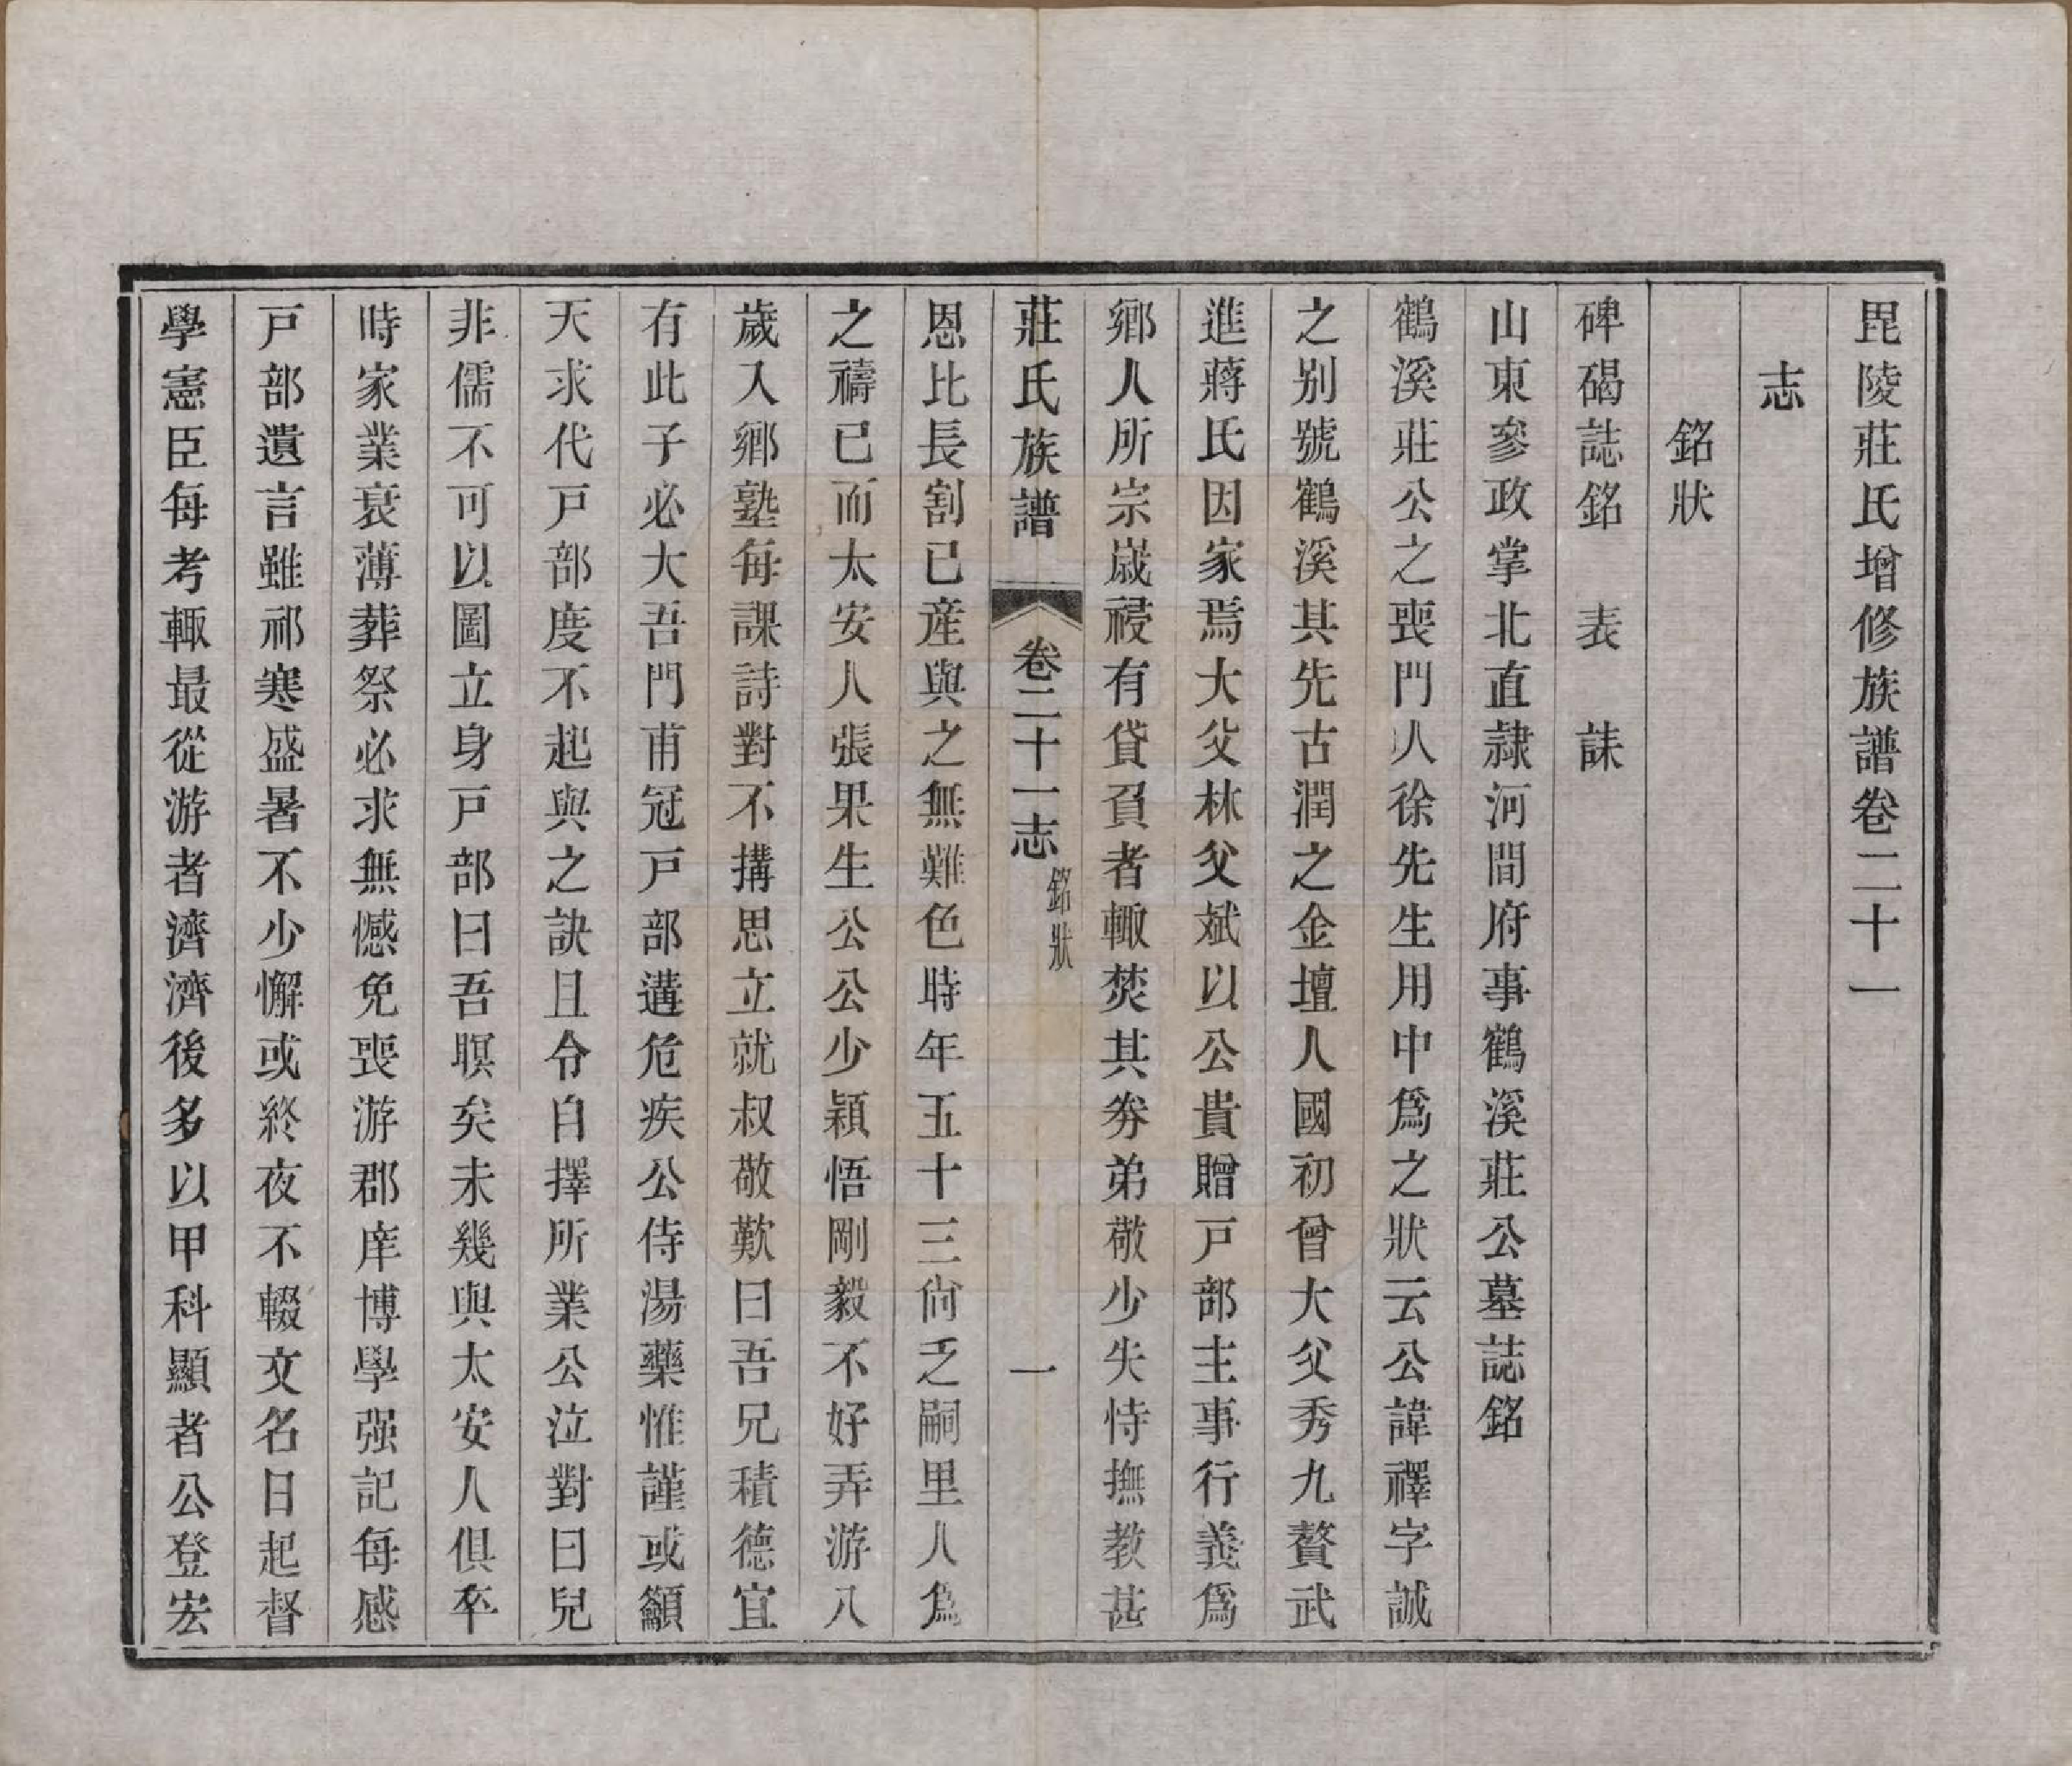 毘陵莊氏增修族譜卷二十一
志
銘狀
碑碣誌銘　表　誄
山東參政掌北直隸河間府事鶴溪莊公墓誌銘
鶴溪莊公之喪門人徐先生用中爲之狀云公諱襗字誠
之別號鶴溪其先古潤之金壇人國初曾大父秀九贅武
進蔣氏因家焉大父林父斌以公貴贈戸部主事行義爲
鄉人所宗歲祲有貸負者輒焚其券弟敬少失恃撫教甚
莊氏族譜　卷二十一志　銘狀　一
恩比長割已産與之無難色時年五十三尙乏嗣里人爲
之禱已而太安人張果生公公少穎悟剛毅不好弄游八
歲入鄉塾每課詩對不搆思立就叔敬歎曰吾兄積德宜
有此子必大吾門甫冠戸部遘危疾公侍湯藥惟謹或籲
天求代戸部度不起與之訣且令自擇所業公泣對曰兒
非儒不可以圖立身戸部曰吾瞑矣未幾與太安人俱卒
時家業衰薄葬祭必求無憾免喪游郡庠博學强記每感
戸部遺言雖祁寒盛暑不少懈或終夜不輟文名日起督
學憲臣每考輒最從游者濟濟後多以甲科顯者公登宏